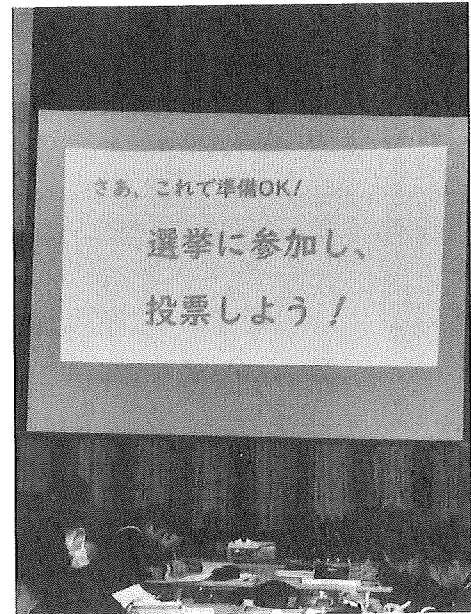 さあ、これで準備OK!
選挙に参加し、
投票しよう!